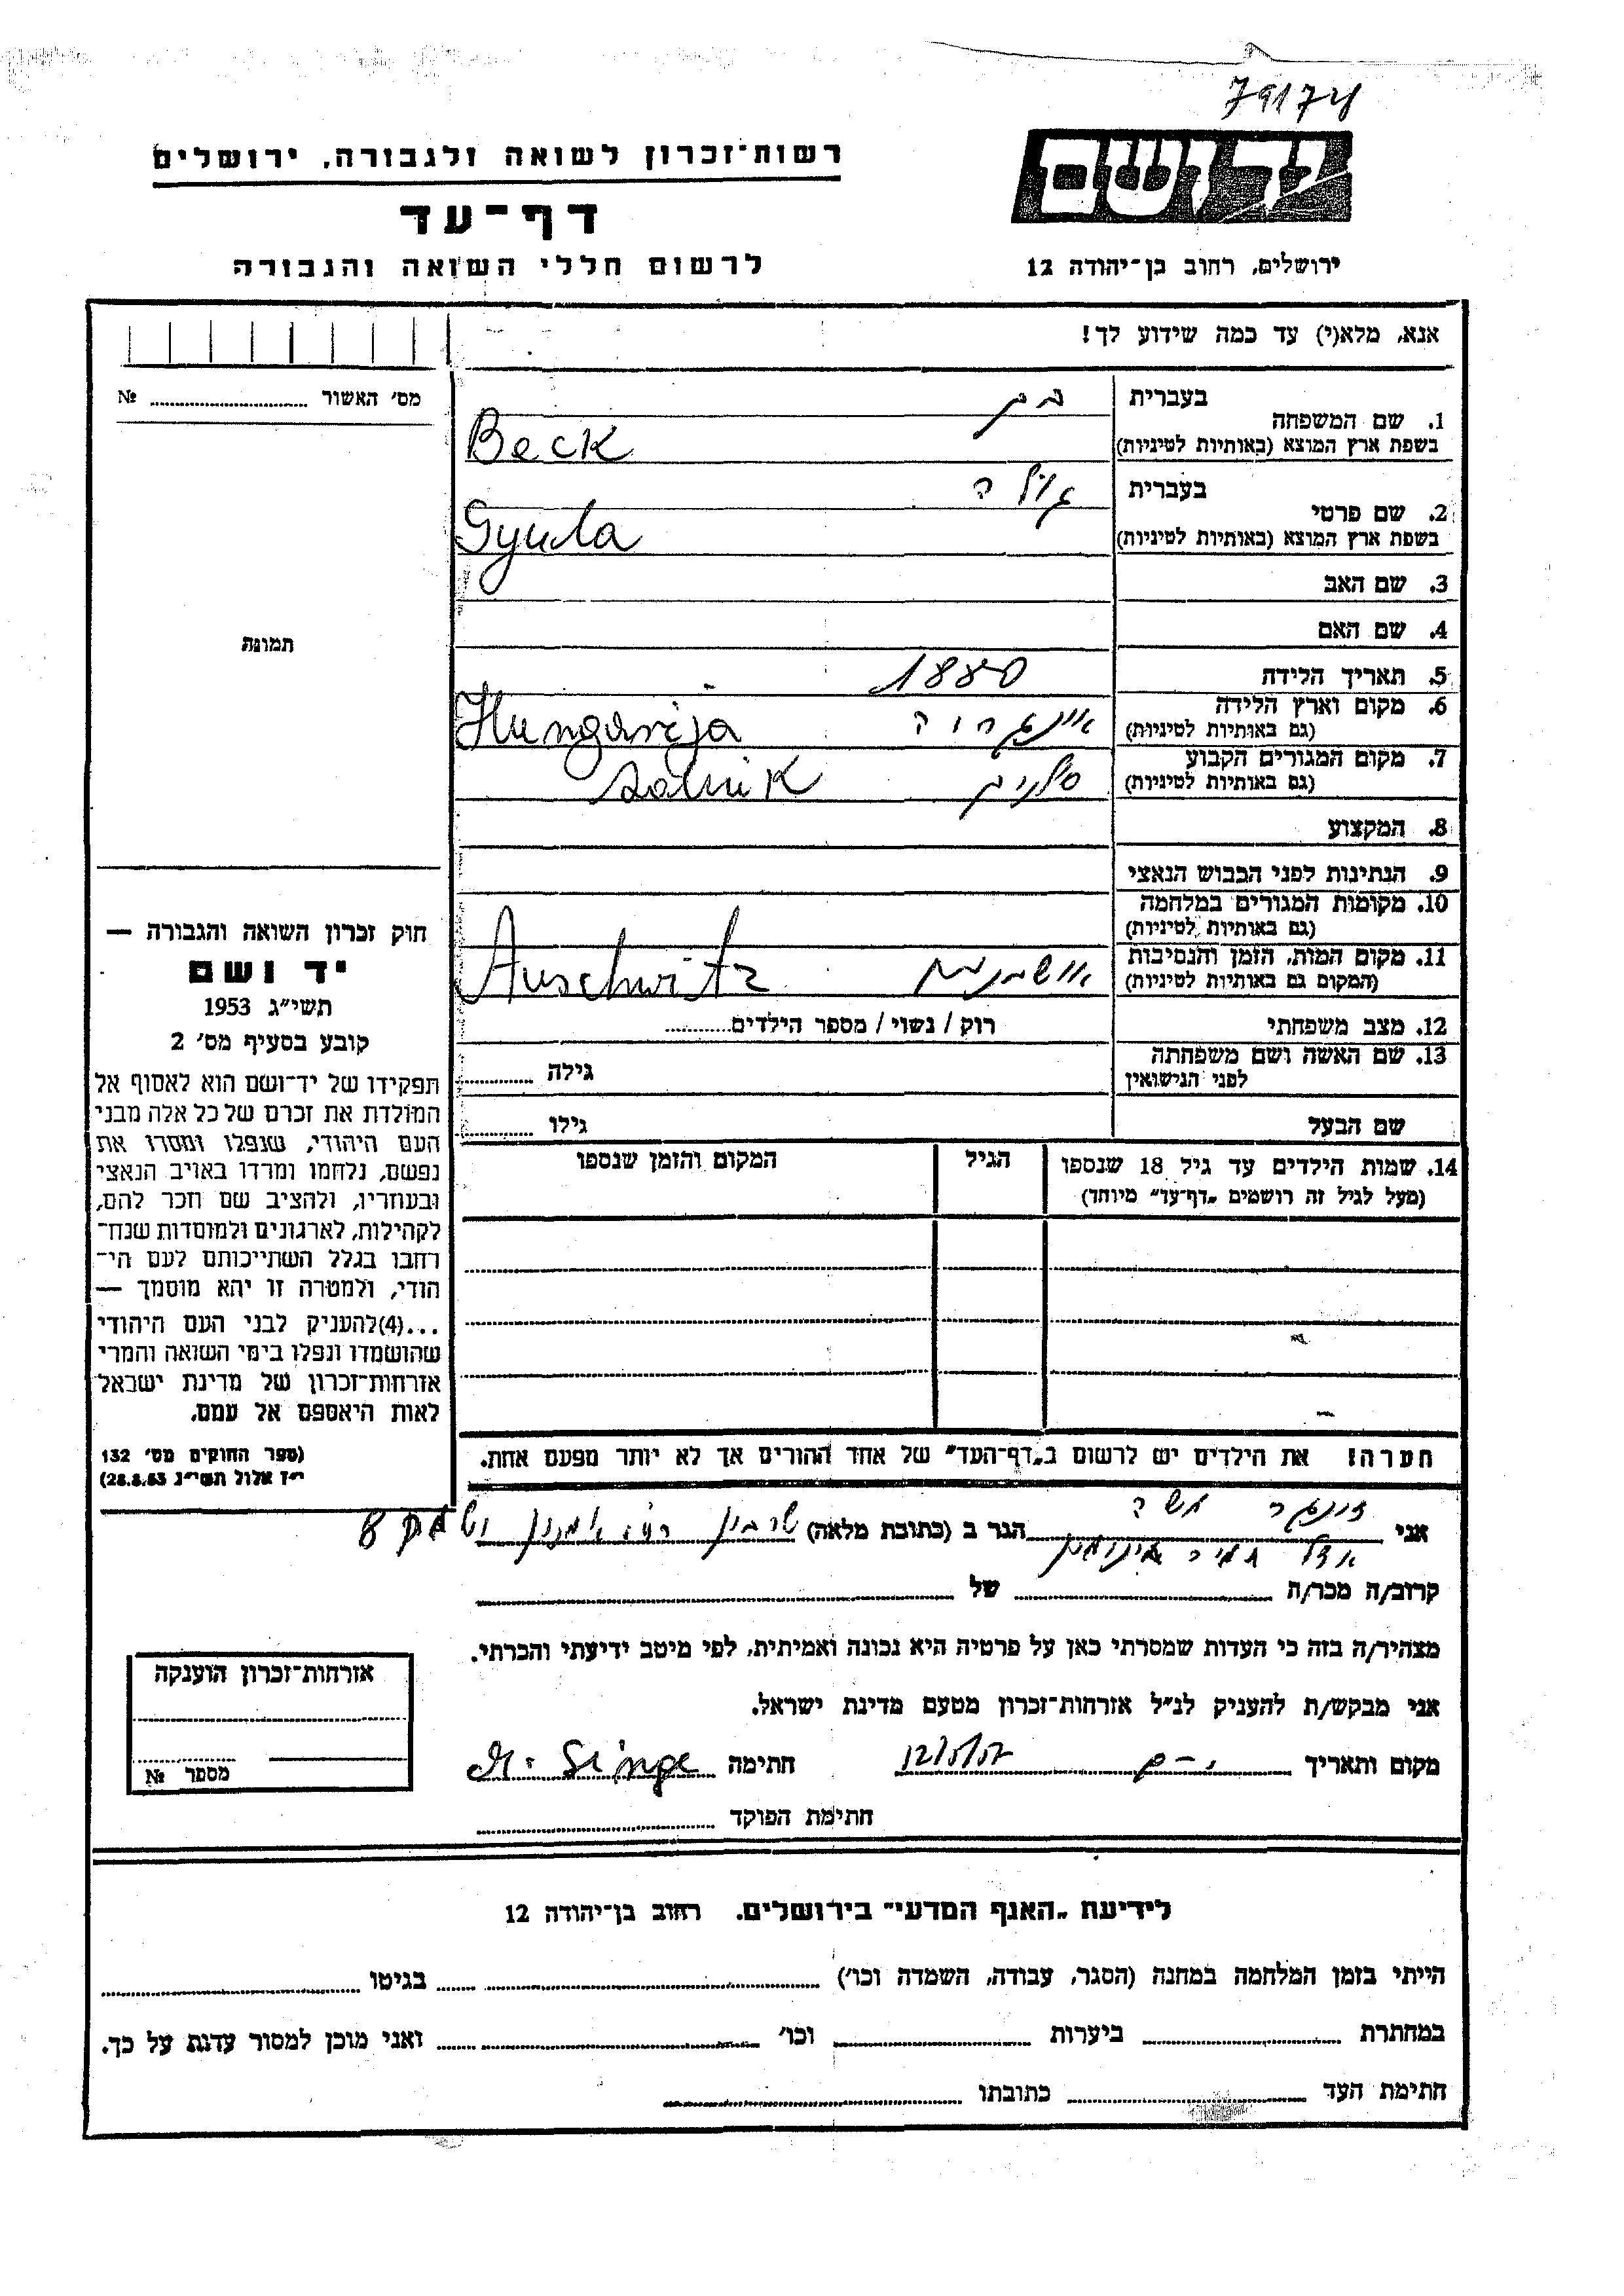 79174
יד ושם
רשות־זכרון לשואה ולגבורה, ירושלים
דף־עד
לרשום חללי השואה והגבורה
ירושלים, רחוב בן־יהודה 12
אנא, מלא(י) עד כמה שידוע לך!
מס׳ האשור № 
1. שם המשפחה
בעברית בק
בשפת ארץ המוצא (באותיות לטיניות) Beck
2. שם פרטי
בעברית גולה
בשפת ארץ המוצא (באותיות לטיניות) Gyula
3. שם האב
4. שם האם
תמונה
5. תאריך הלידה 1880
6. מקום וארץ הלידה
(גם באותיות לטיניות) Hungarija
7. מקום המגורים הקבוע
(גם באותיות לטיניות) סלניק Solnik
8. המקצוע
9. הנתינות לפני הכבוש הנאצי
10. מקומות המגורים במלחמה
(גם באותיות לטיניות)
11. מקום המות, הזמן והנסיבות
(המקום גם באותיות לטיניות) Auschwitz
12. מצב משפחתי רוק / נשוי / מספר הילדים
13. שם האשה ושם משפחתה
לפני הנישואין גילה
שם הבעל גילו
14. שמות הילדים עד גיל 18 שנספו הגיל המקום והזמן שנספו
(מעל לגיל זה רושמים „דף־עד״ מיוחד)
הערה! את הילדים יש לרשום ב„דף־העד״ של אחד ההורים אך לא יותר מפעם אחת.
חוק זכרון השואה והגבורה —
יד ושם
תשי״ג 1953
קובע בסעיף מס׳ 2
תפקידו של יד־ושם הוא לאסוף אל
המולדת את זכרם של כל אלה מבני
העם היהודי, שנפלו ומסרו את
נפשם, נלחמו ומרדו באויב הנאצי
ובעוזריו, ולהציב שם וזכר להם,
לקהילות, לארגונים ולמוסדות שנח־
רבו בגלל השתייכותם לעם הי־
הודי, ולמטרה זו יהא מוסמך —
...(4)להעניק לבני העם היהודי
שהושמדו ונפלו בימי השואה והמרי
אזרחות־זכרון של מדינת ישראל
לאות היאספם אל עמם.
(ספר החוקים מס׳ 132
י״ז אלול תשי״ג 28.8.53)
אני זינגר הגר ב (כתובת מלאה)
קרוב/ה מכר/ה של
מצהיר/ה בזה כי העדות שמסרתי כאן על פרטיה היא נכונה ואמיתית, לפי מיטב ידיעתי והכרתי.
אני מבקש/ת להעניק לנ״ל אזרחות־זכרון מטעם מדינת ישראל.
מקום ותאריך י-ם חתימה
חתימת הפוקד
אזרחות־זכרון הוענקה
מספר №
לידיעת „האגף המדעי״ בירושלים. רחוב בן־יהודה 12
הייתי בזמן המלחמה במחנה (הסגר, עבודה, השמדה וכו׳) בגיטו
במחתרת ביערות וכו׳ ואני מוכן למסור עדות על כך.
חתימת העד כתובתו